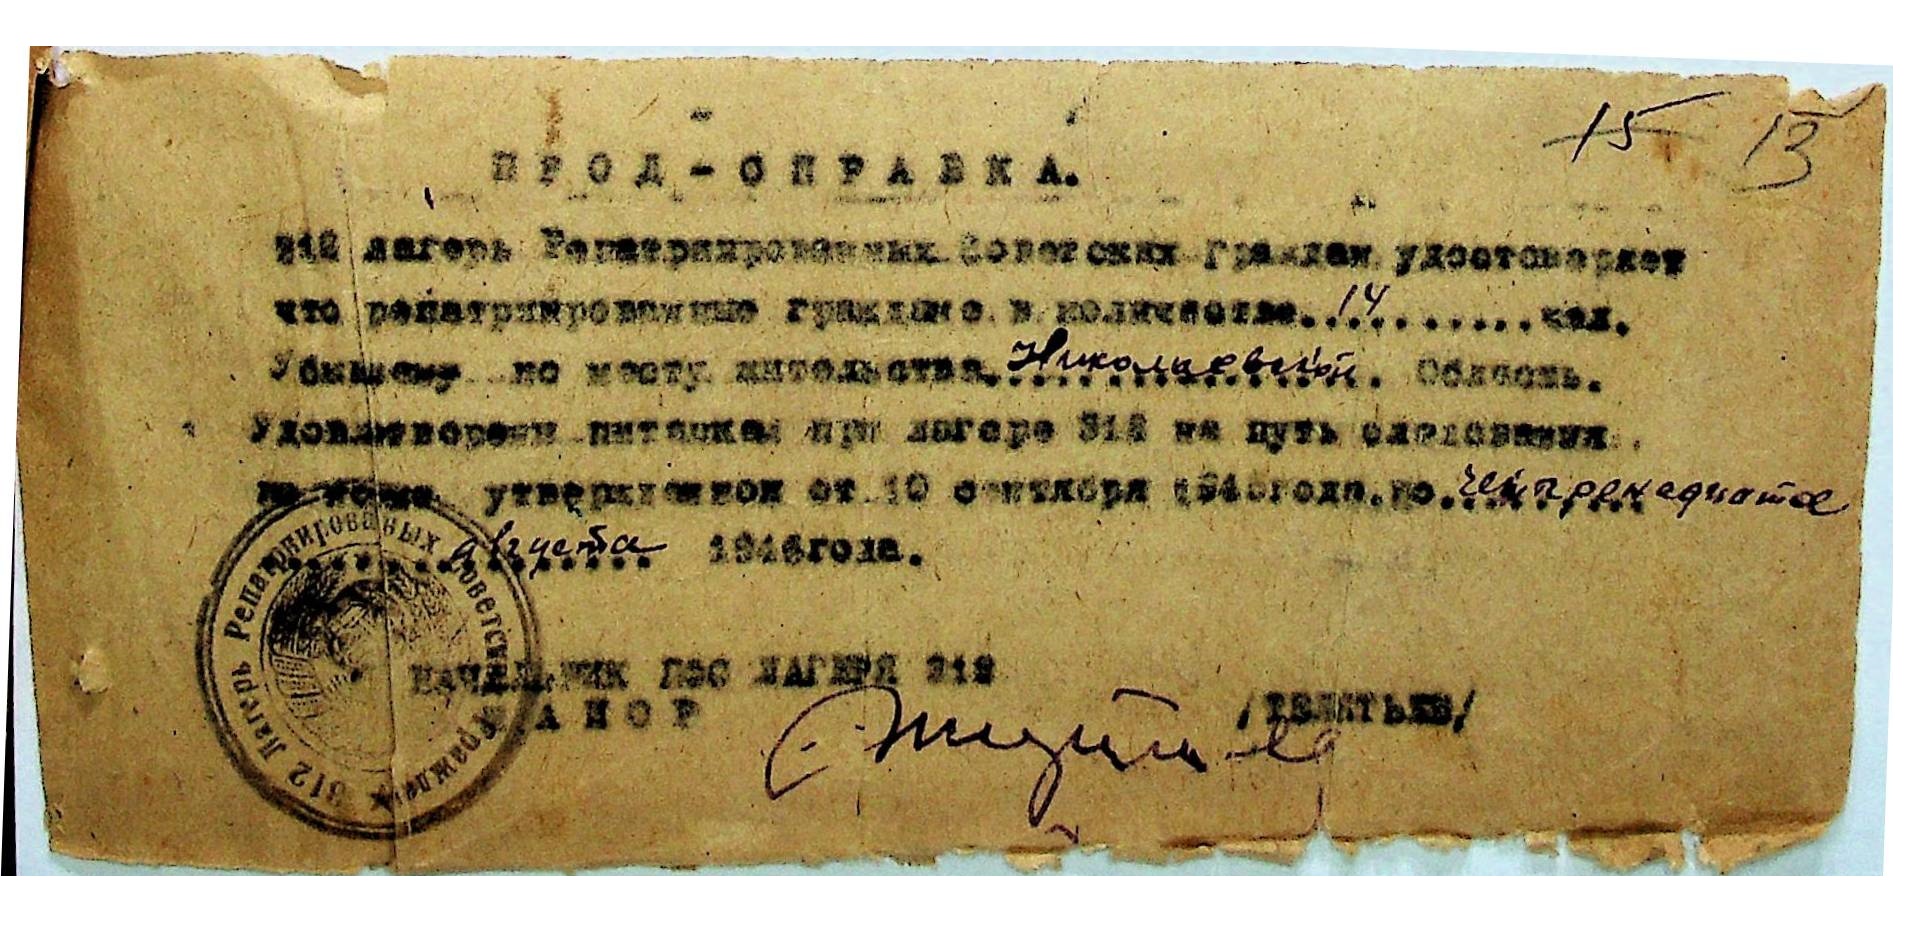 15 13
ПРОД-СПРАВКА.
312 лагерь Репатриированных Советских Граждан удостоверяет
что репатриированные граждане в количестве..14..........чел.
Убывшему по месту жительства..Николаевской.. Область.
Удовлетворени питанием при лагере 312 на путь следования.
по норме утвержденной от 10 сентября 194 года.по..
.....августа..... 1946года.
НАЧАЛЬНИК ПФС ЛАГЕРЯ 312
МАЙОР
312 Лагерь Репатриированных Советских Граждан